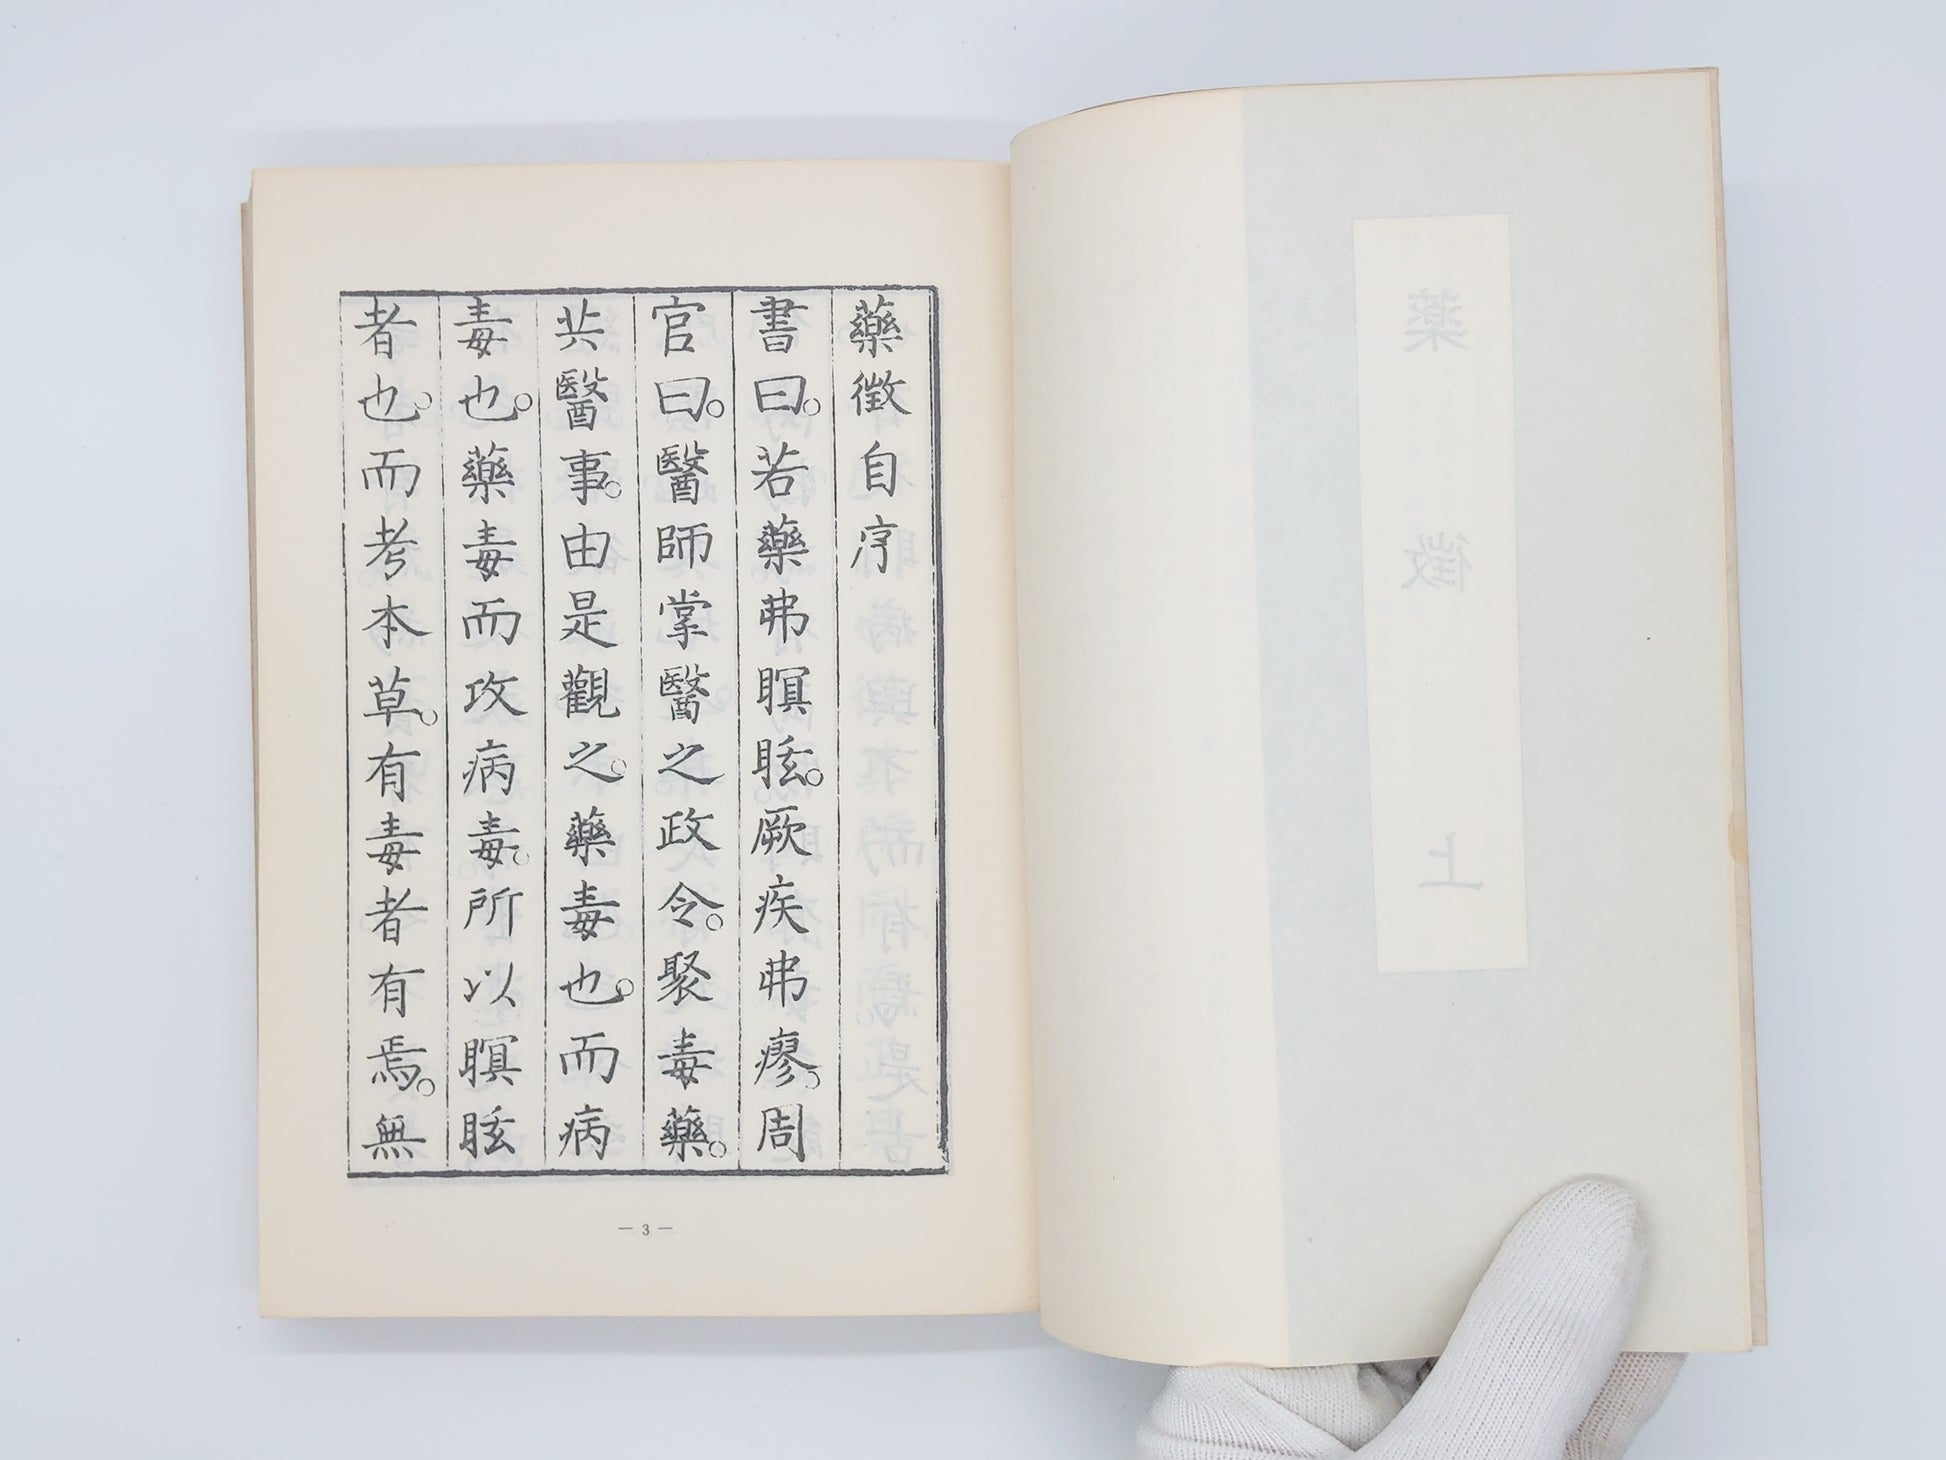 藥徴自序
書曰。若藥弗瞑眩。厥疾弗瘳。周
官曰。醫師掌醫之政令。聚毒藥。
共醫事。由是觀之。藥毒也。而病
毒也。藥毒而攻病毒。所以瞑眩
者也。而考本草。有毒者有焉。無
— 3 —
藥徴 上